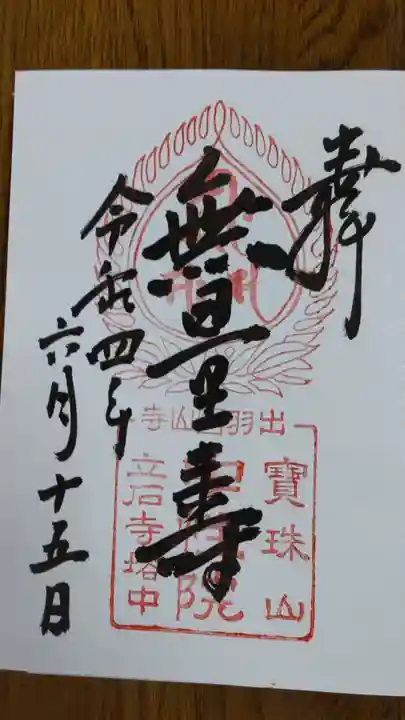 奉
無量寿
令和四年
六月十五日
出羽国山寺
寶珠山
院
立石寺塔中